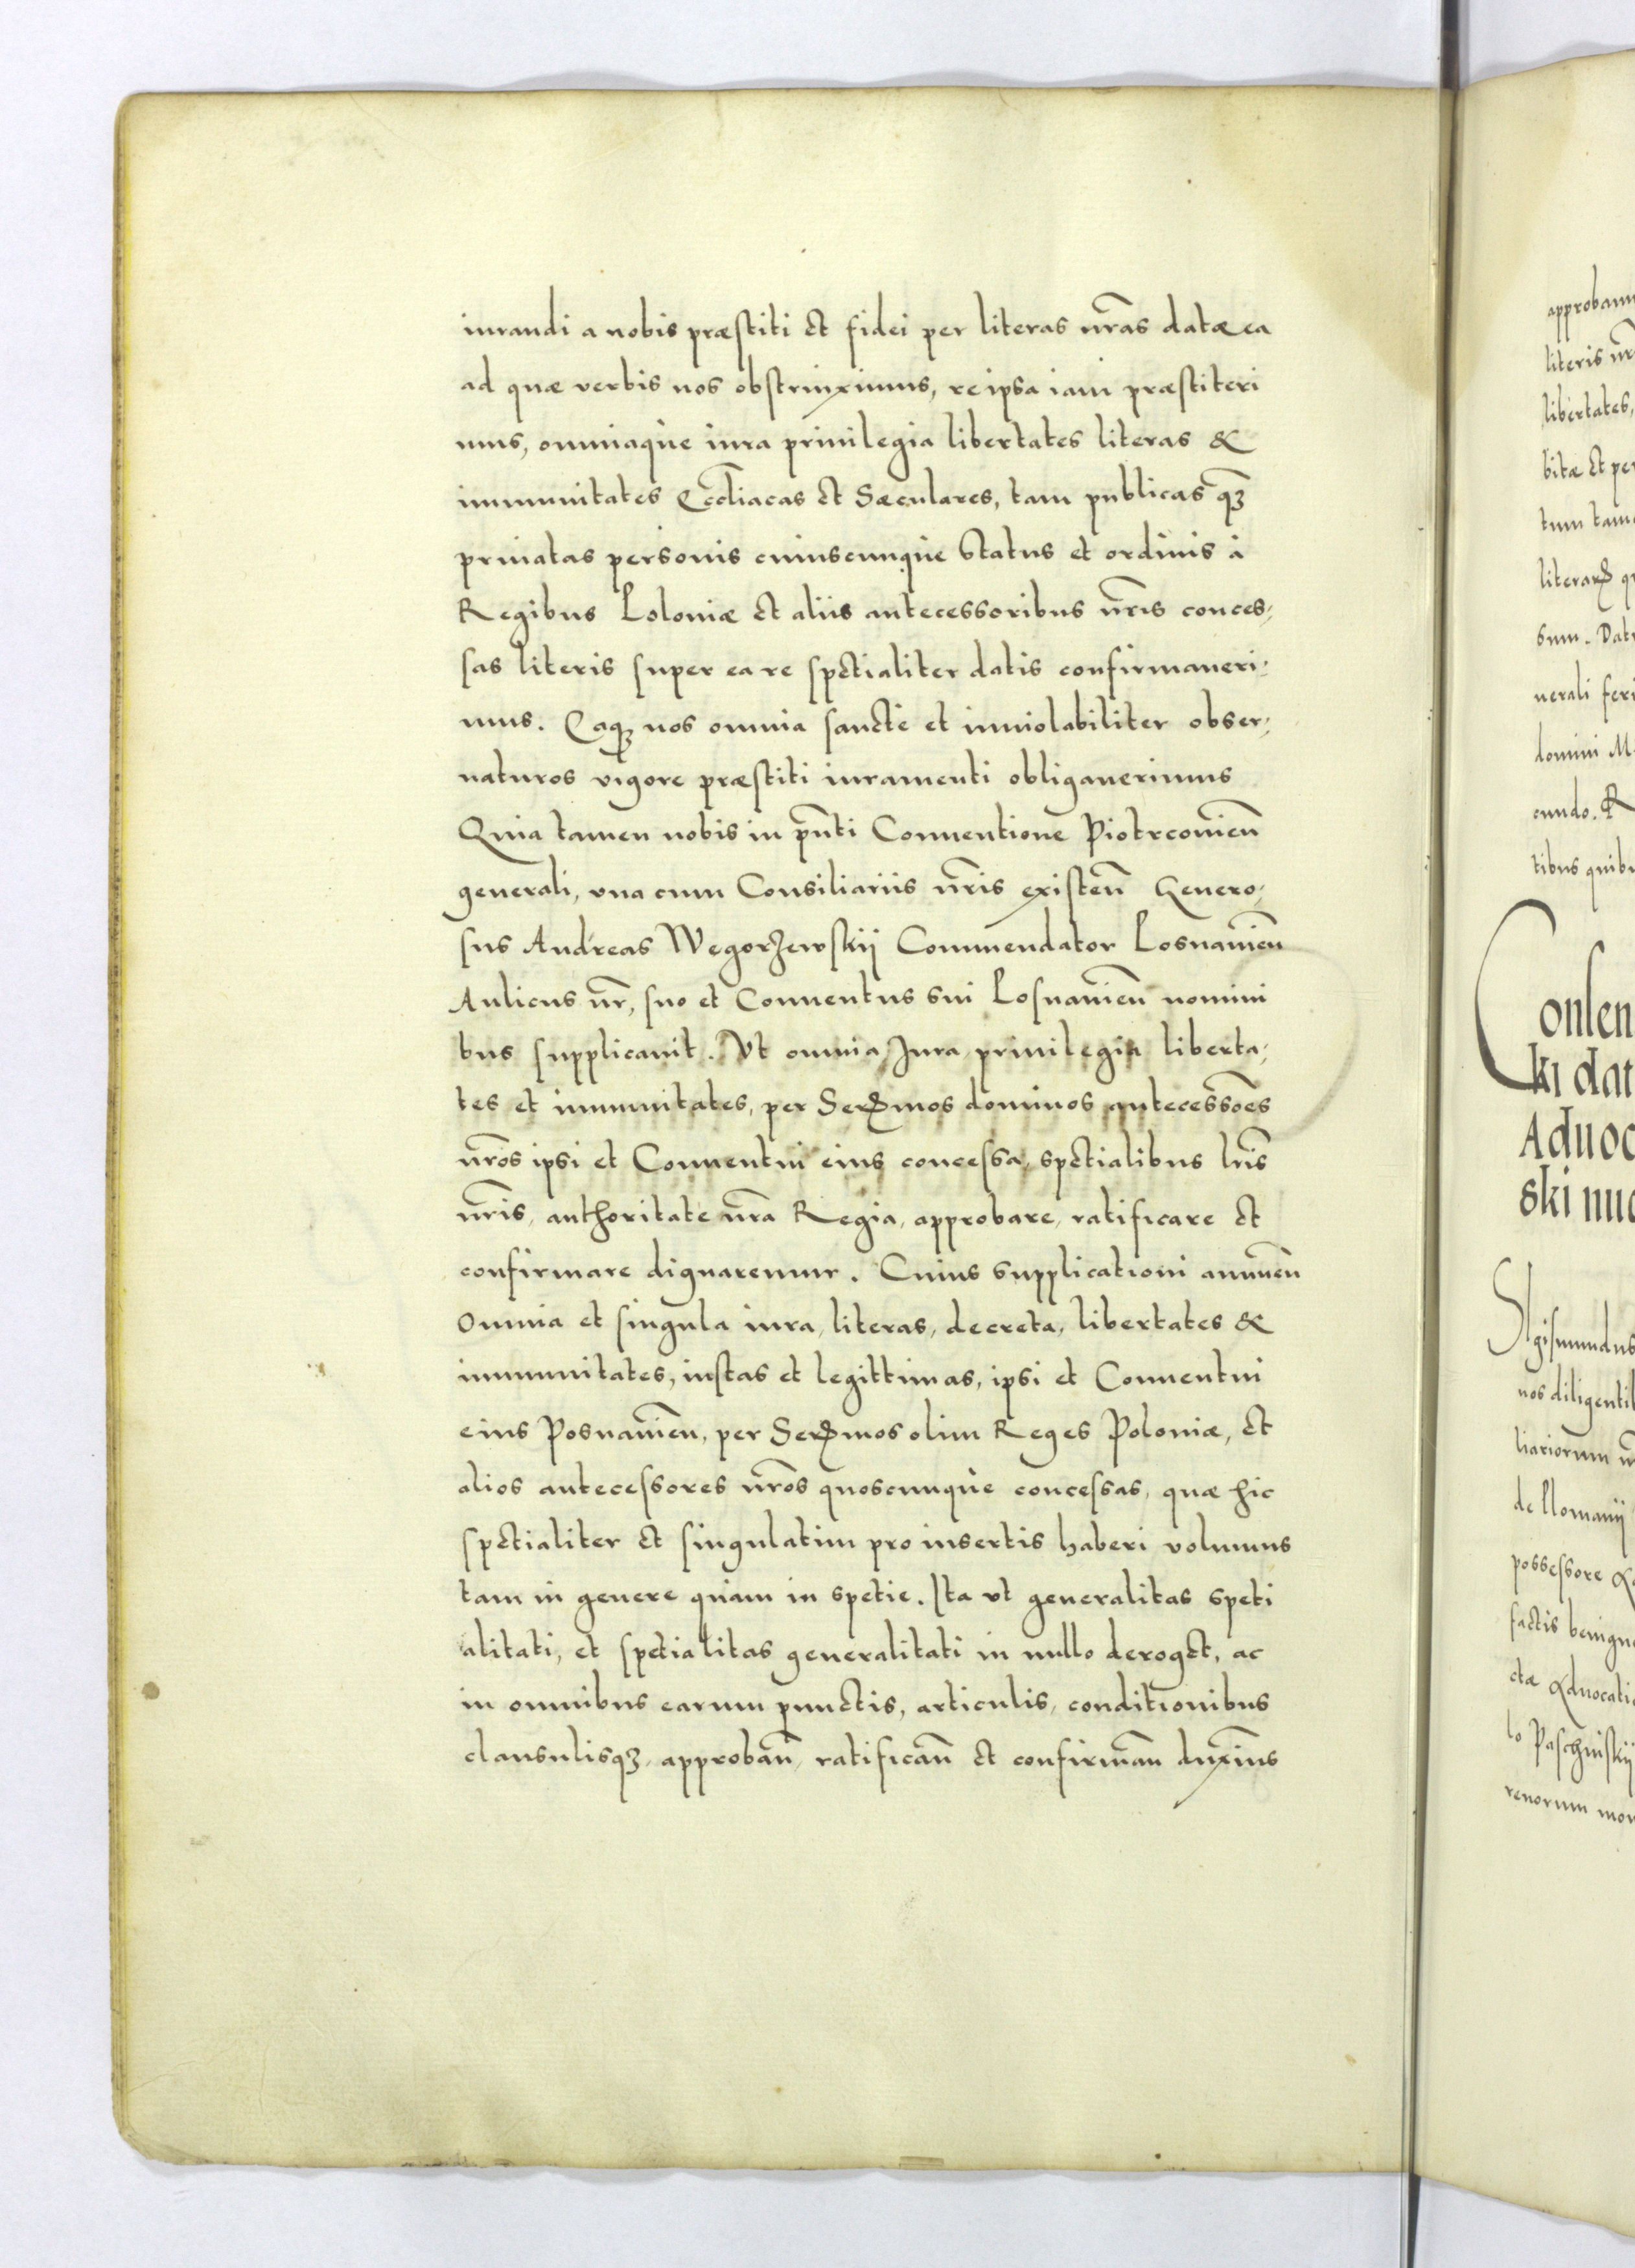 iurandi a nobis præstiti et fidei per literas nr̃as datæ ea
ad quæ verbis nos obstrinximus, re ipsa iam præstiteri
mus, omniaque iura priuilegia libertates literas &
immunitates Eccl̃iacas et Sæculares, tam publicas qꝫ
priuatas personis cuiuscunque status et ordinis à
Regibus Poloniæ et aliis antecessoribus nr̃is conces,
sas literis super ea re spetialiter datis confirmaueri,
mus. Eaqꝫ nos omnia sancte et inuiolabiliter obser,
uaturos vigore præstiti iuramenti obligauerimus
Quia tamen nobis in pñti Conuentione Piotrcouien̄
generali, vna cum Consiliariis nr̃is existen̄ Genero,
sus Andreas Wegorzewskij Commendator Posnanien̄
Aulicus nr̃, suo et Conuentus sui Posnanien̄ nomini
bus supplicauit. Vt omnia Jura priuilegia liberta,
tes et immunitates, per Serꝫmos dominos antecessões
nr̃os ipsi et Conuentui eius concessa, spetialibus lr̃is
nr̃is, authoritate nr̃a Regia, approbare, ratificare et
confirmare dignaremur. Cuius supplicationi annuen̄
Omnia et singula iura, literas, decreta, libertates &
immunitates, iustas et legittimas, ipsi et Conuentui
eius Posnanien̄, per Serꝫmos olim Reges Poloniæ, et
alios antecessores nr̃os quoscunque concessas, quæ hic
spetialiter et singulatim pro insertis haberi volumus
tam in genere quam in spetie. Ita vt generalitas speti
alitati, et spetialitas generalitati in nullo deroget, ac
in omnibus earum punctis, articulis, conditionibus
clausulisqꝫ, approban̄, ratifican̄ et confirman̄ duxim̄us
approbamu
literis nr̃
libertates,
bitæ et per
tum tam
literarꝫ q
sum. Dat
nerali feri
domini M
cundo. R
tibus quib
Consen
ki dat
Aduoc
ski nu
Sigismundus
nos diligenti
liariorum
de Slomanij
possessore
factis benign
ctæ Aduocati
lo Paschinskij
renorum mon